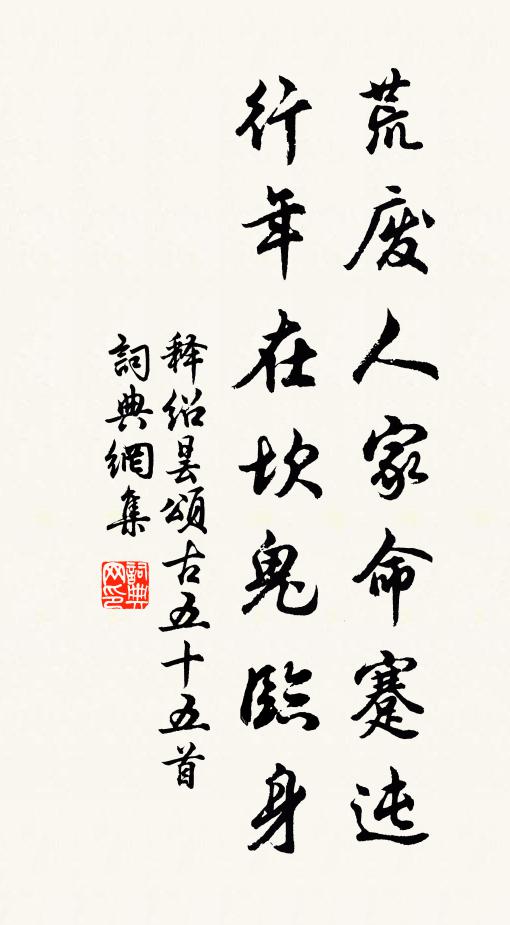 荒废人家命蹇迍
行年在坎鬼臨身
释绍昙頌古五十五首
詞典網集
詞典网印